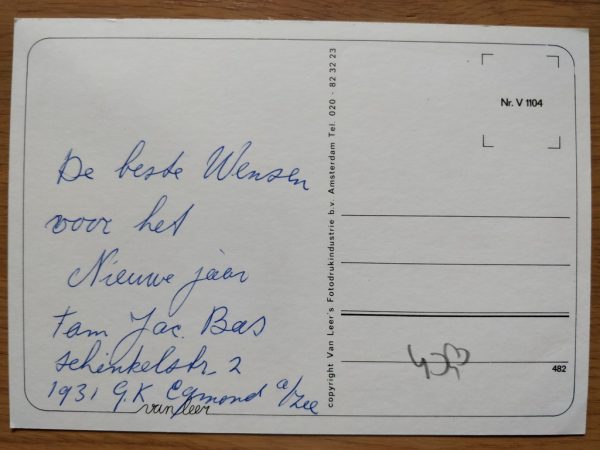 De beste Wensen
voor het
Nieuwe jaar
fam Jac. Bas
Schinkelstr. 2
1931 GK Egmond a/Zee
van Leer
copyright Van Leer's Fotodrukindustrie b.v. Amsterdam Tel. 020 - 82 32 23
Nr. V 1104
482